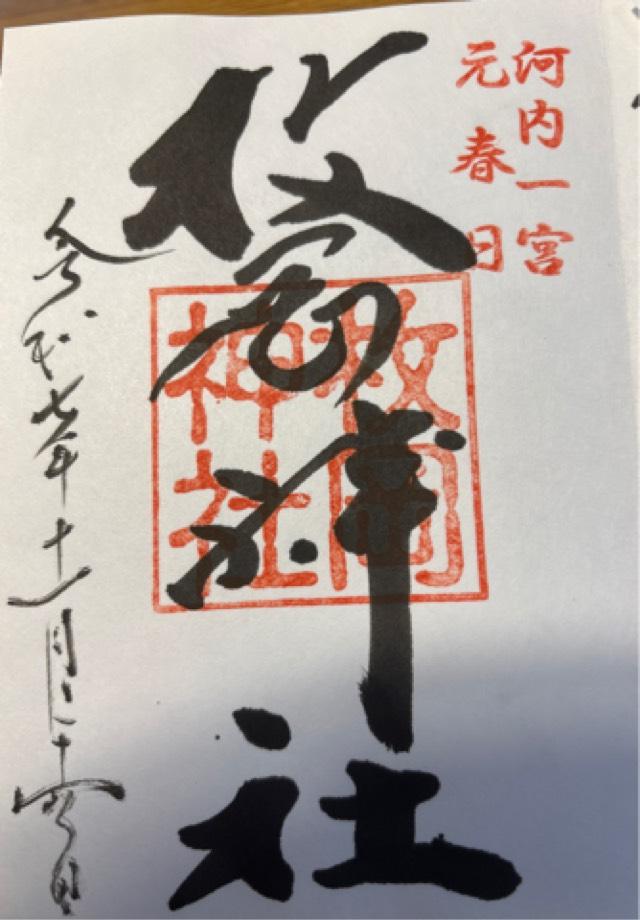 河内一宮
元春日
枚岡神社
枚岡
神社
令和七年十一月二十日